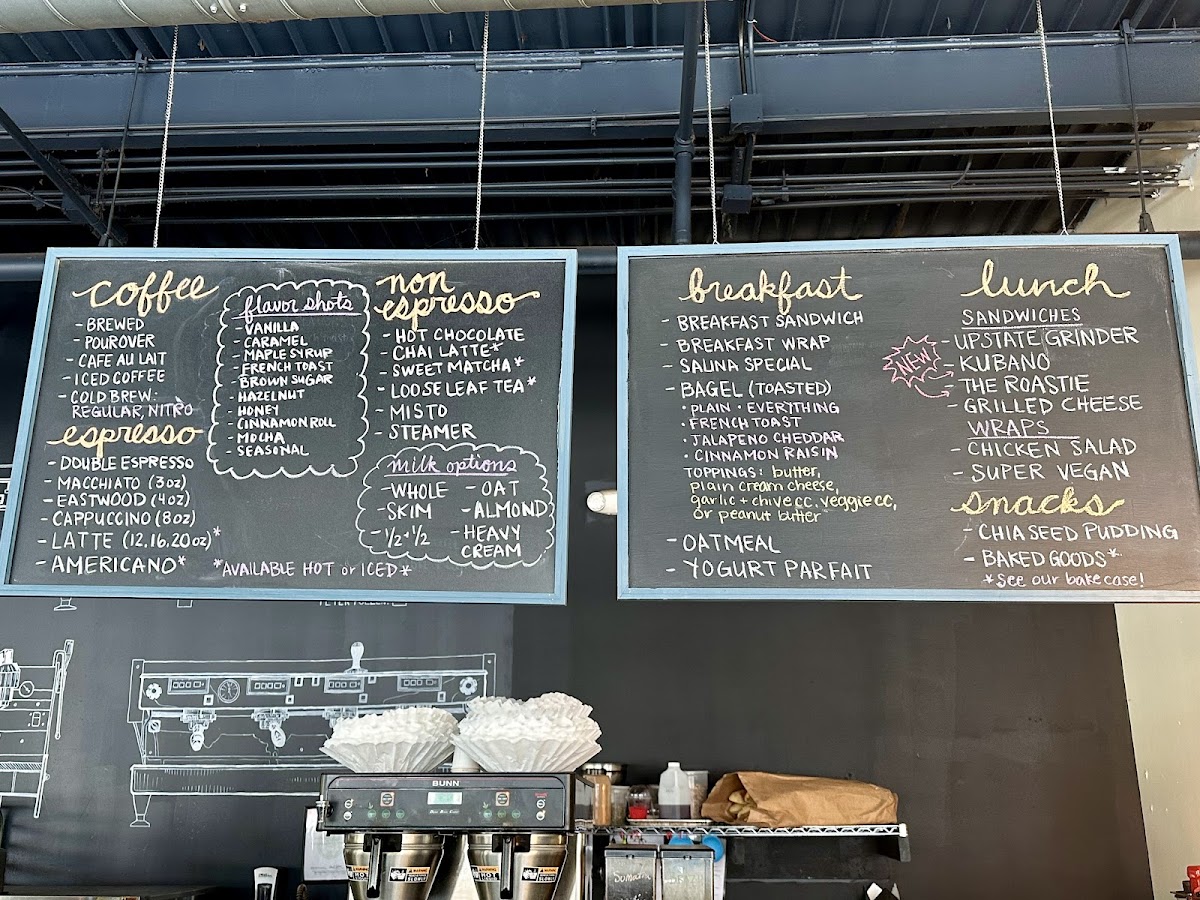 coffee
- BREWED
- POUROVER
- CAFE AU LAIT
- ICED COFFEE
- COLD BREW:
REGULAR, NITRO
espresso
- DOUBLE ESPRESSO
- MACCHIATO (3oz)
- EASTWOOD (4oz)
- CAPPUCCINO (8oz)
- LATTE (12, 16, 20oz)*
- AMERICANO*
flavor shots
- VANILLA
- CARAMEL
- MAPLE SYRUP
- FRENCH TOAST
- BROWN SUGAR
- HAZELNUT
- HONEY
- CINNAMON ROLL
- MOCHA
- SEASONAL
non
espresso
- HOT CHOCOLATE
- CHAI LATTE*
- SWEET MATCHA*
- LOOSE LEAF TEA*
- MISTO
- STEAMER
milk options
- WHOLE - OAT
- SKIM - ALMOND
- 1/2 + 1/2 - HEAVY
CREAM
*AVAILABLE HOT or ICED*
breakfast
- BREAKFAST SANDWICH
- BREAKFAST WRAP
- SALINA SPECIAL
- BAGEL (TOASTED)
• PLAIN • EVERYTHING
• FRENCH TOAST
• JALAPENO CHEDDAR
• CINNAMON RAISIN
TOPPINGS: butter,
plain cream cheese,
garlic + chive cc, veggie cc,
or peanut butter
- OATMEAL
- YOGURT PARFAIT
lunch
SANDWICHES
- UPSTATE GRINDER
NEW!
- KUBANO
- THE ROASTIE
- GRILLED CHEESE
WRAPS
- CHICKEN SALAD
- SUPER VEGAN
snacks
- CHIA SEED PUDDING
- BAKED GOODS*
*See our bake case!
BUNN